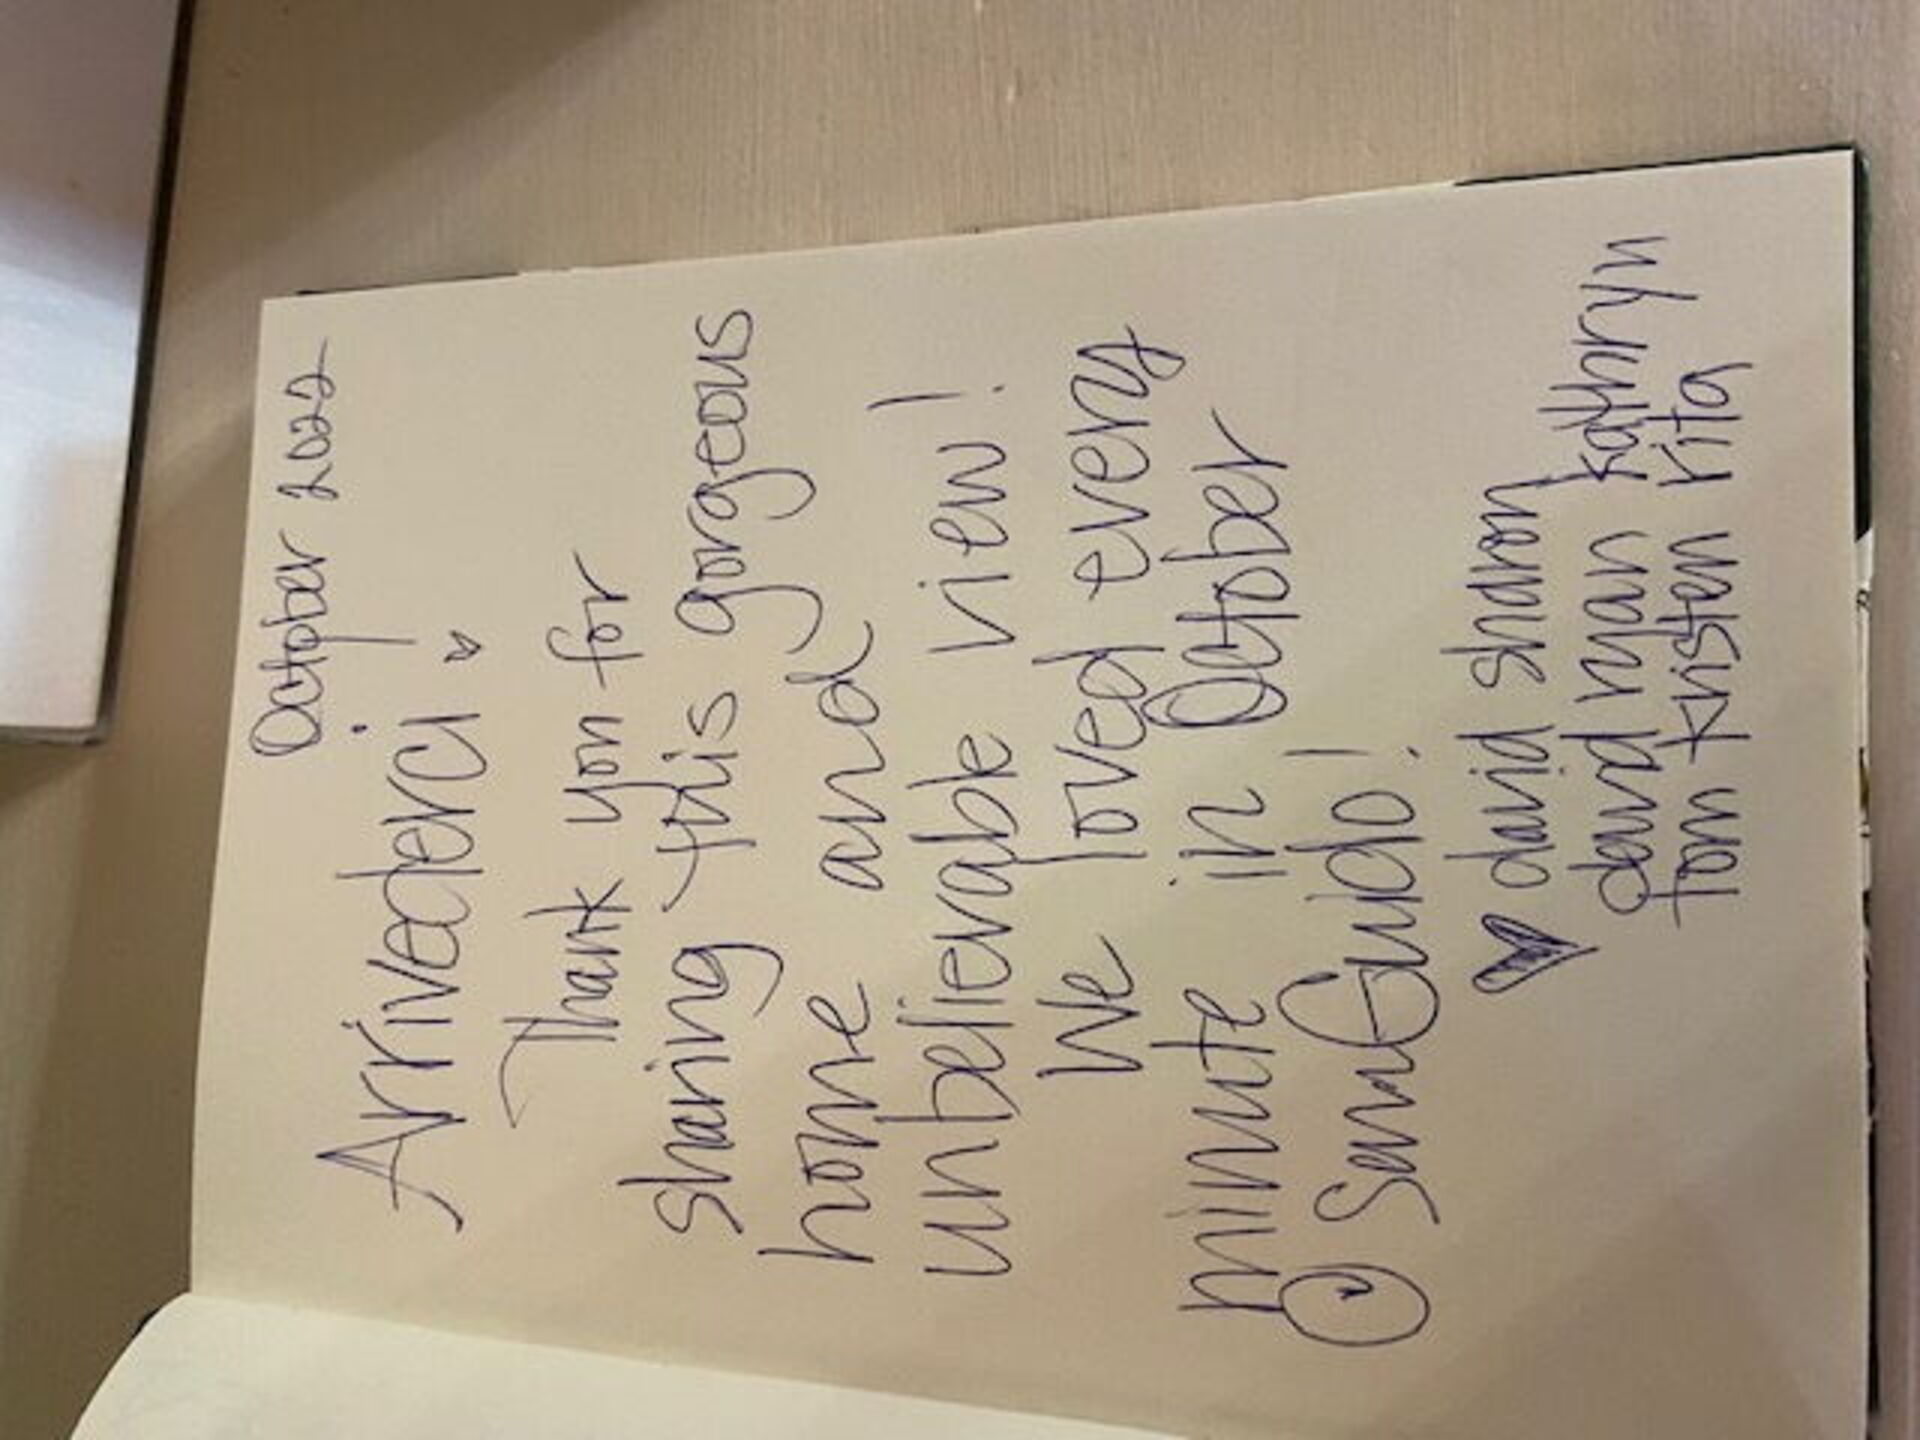 October 2022
Arrivederci
Thank you for
sharing this gorgeous
home and
unbelievable view!
We loved every
minute in October
@ SemGuido!
david sharon
paul nan kathryn
tom kristen rita